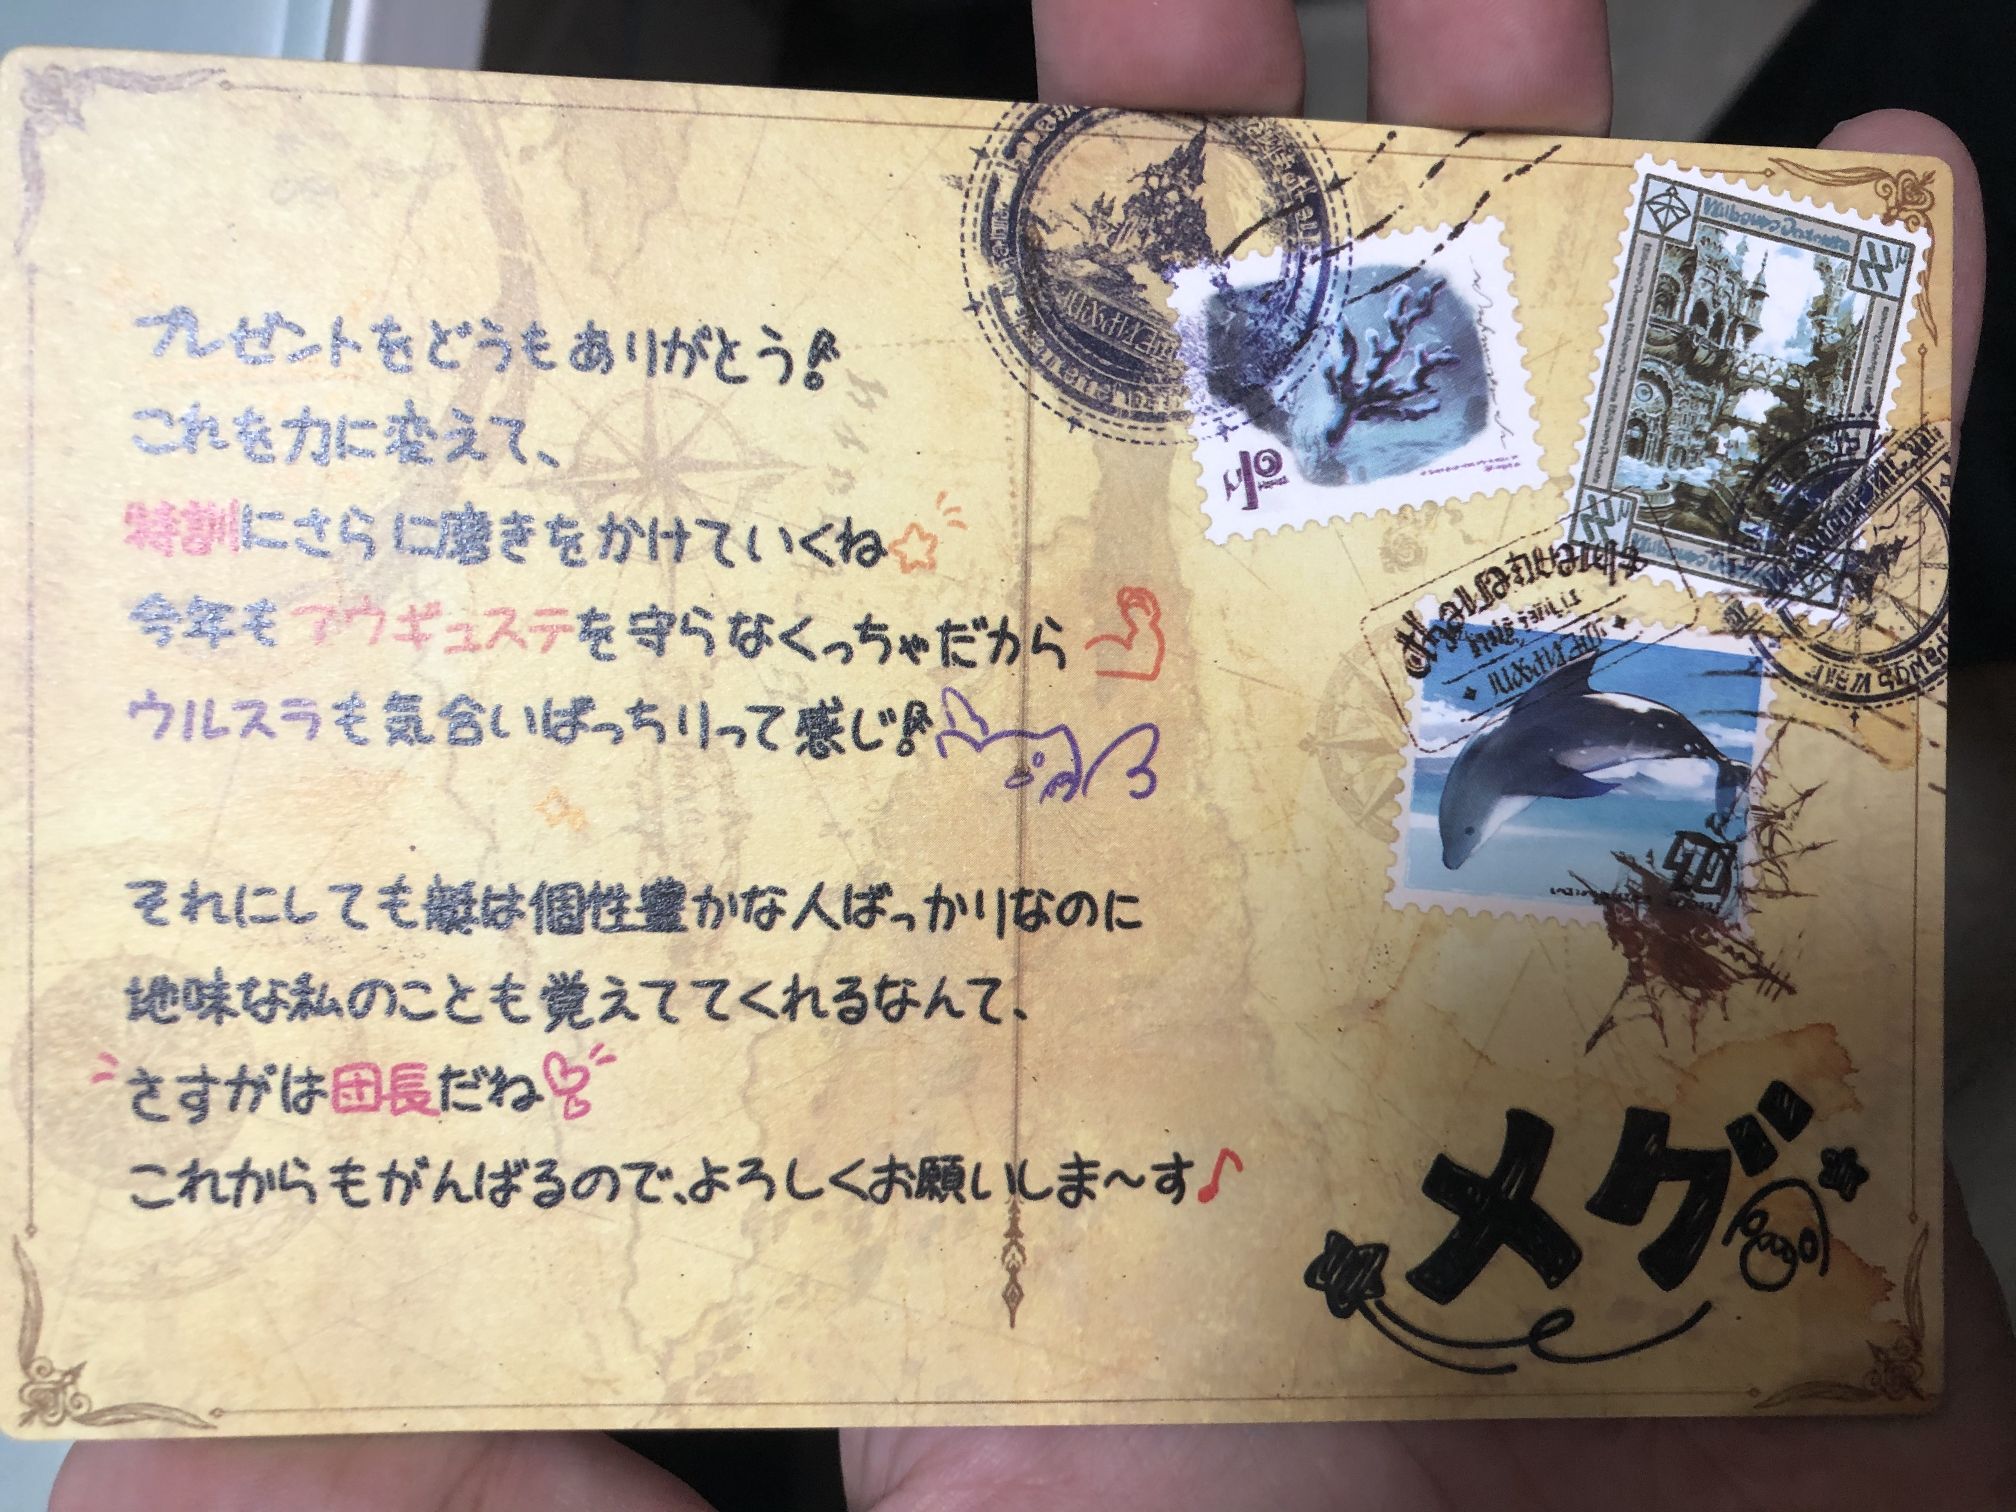 プレゼントをどうもありがとう♪
これを力に変えて、
特訓にさらに磨きをかけていくね☆
今年もアウギュステを守らなくっちゃだから
ウルスラも気合いばっちりって感じ♪
それにしても艇は個性豊かな人ばっかりなのに
地味な私のことも覚えててくれるなんて、
さすがは団長だね
これからもがんばるので、よろしくお願いしま〜す♪
メグ